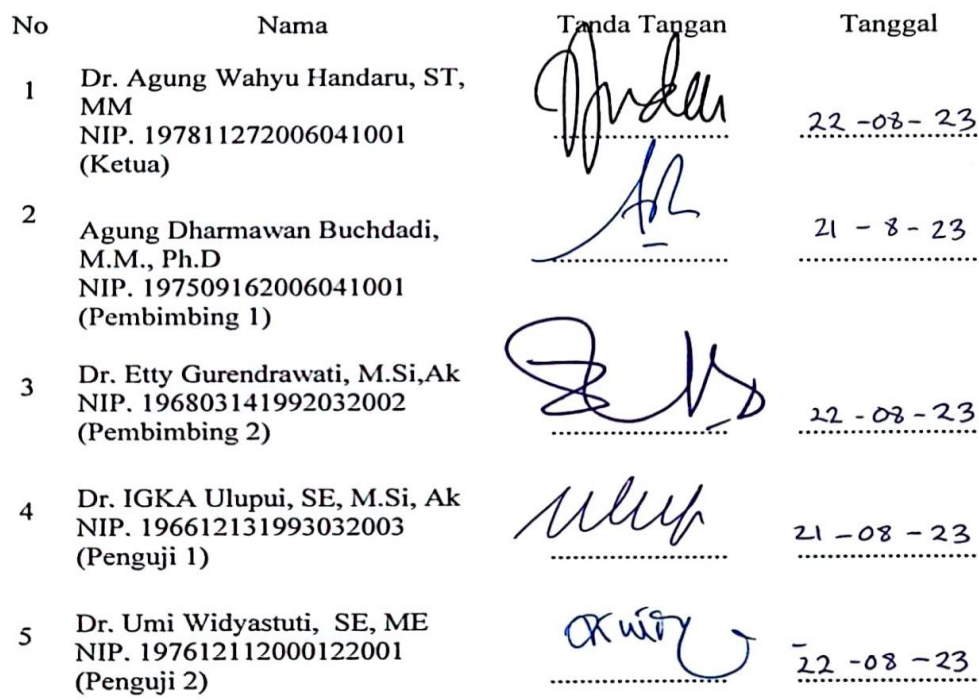 No Nama Tanda Tangan Tanggal
1 Dr. Agung Wahyu Handaru, ST,
MM
NIP. 197811272006041001
(Ketua)
22-08-23
2
Agung Dharmawan Buchdadi,
M.M., Ph.D
NIP. 197509162006041001
(Pembimbing 1)
21-8-23
3 Dr. Etty Gurendrawati, M.Si,Ak
NIP. 196803141992032002
(Pembimbing 2)
22-08-23
4 Dr. IGKA Ulupui, SE, M.Si, Ak
NIP. 196612131993032003
(Penguji 1)
21-08-23
5 Dr. Umi Widyastuti, SE, ME
NIP. 197612112000122001
(Penguji 2)
22-08-23